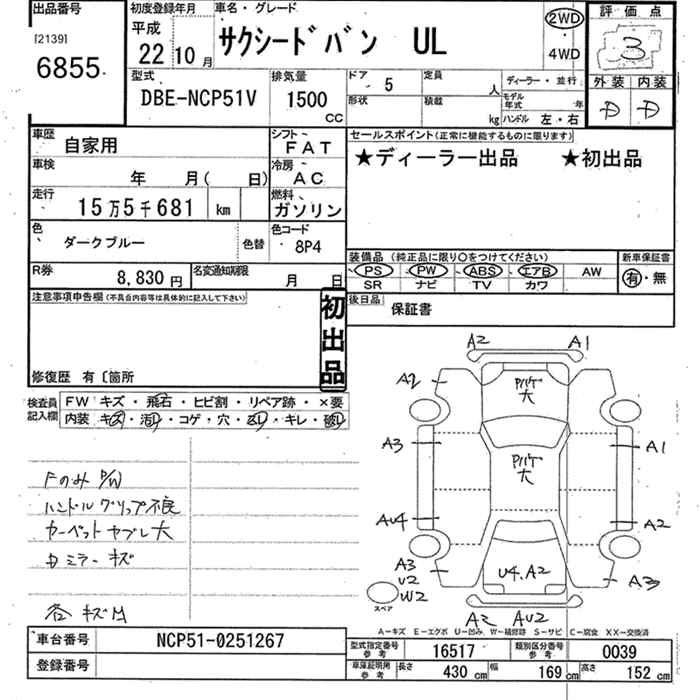 出品番号 初度登録年月 車名・グレード 評価点
[2139] 平成 2WD
6855 22 10月 サクシードバン UL ・ 3
4WD
型式 排気量 ドア 5 定員 人 ディーラー・並行 外装 内装
DBE-NCP51V 1500 CC 形状 積載 kg モデル年式 年 D D
ハンドル 左・右
車歴 自家用 シフト FAT セールスポイント(正常に機能するものに限ります)
★ディーラー出品 ★初出品
車検 年 月( 日) 冷房 AC
走行 15万5千681 km 燃料 ガソリン
色 ダークブルー 色替 色コード 8P4
装備品 (純正品に限り○をつけてください) 新車保証書
PS PW ABS エアB AW 有・無
SR ナビ TV カワ
R券 8,830円 名変通知期限 月 日
注意事項申告欄(不具合内容等は具体的に記入して下さい) 後日品 保証書
初出品
修復歴 有〔箇所
検査員記入欄 FW キズ・飛石・ヒビ割・リペア跡・×要
内装 キズ・汚れ・コゲ・穴・スレ・キレ・破れ
Fのみ P/W
ハンドルグリップ不良
カーペットヤブレ大
カミラーキズ
各キズ凹
A2 A1
A2 パリケ大
A3 A1
パリケ大
AU4 A2
A3 U2 W2 U4.A2 A3
スペア
A2 AU2
A-キズ E-エクボ U-凹み W-補修跡 S-サビ C-腐食 XX-交換済
車台番号 NCP51-0251267
登録番号
型式指定番号 参考 16517 類別区分番号 参考 0039
車庫証明用 参考 長さ 430 cm 幅 169 cm 高さ 152 cm